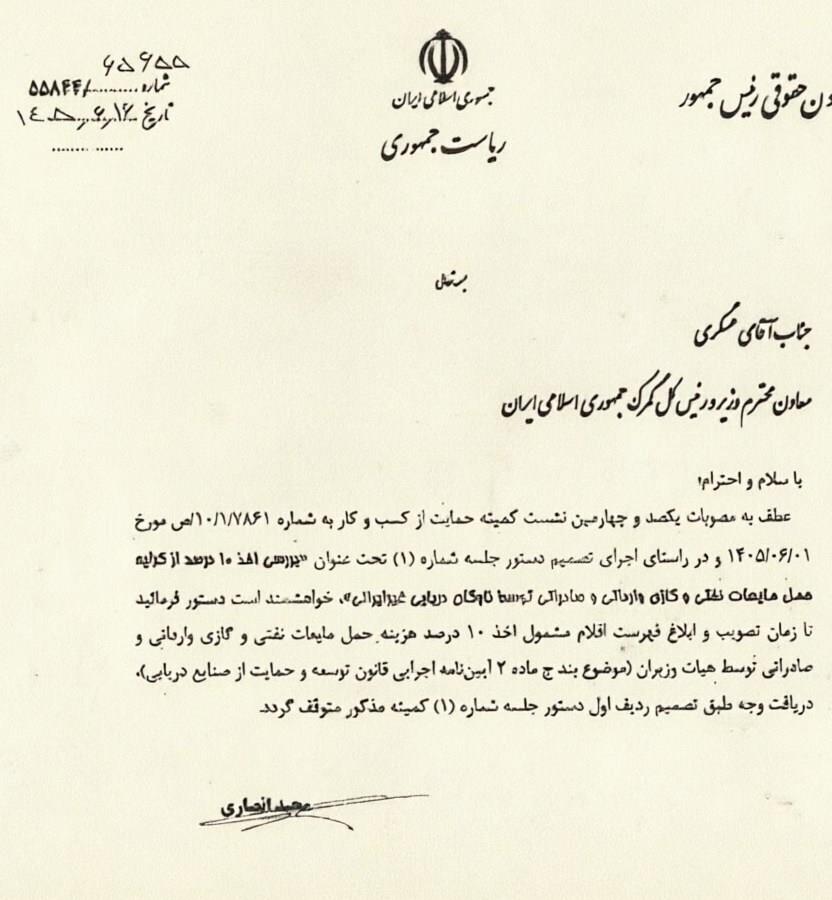 ۶۵۶۵۵
شماره ........../۵۵۸۴۴
تاریخ ۱۴۰۵/۶/۱۶
جمهوری اسلامی ایران
ریاست جمهوری
حقوقی رئیس جمهور
بسمه تعالی
جناب آقای عسکری
معاون محترم وزیر و رئیس کل گمرک جمهوری اسلامی ایران
با سلام و احترام؛
عطف به مصوبات یکصد و چهارمین نشست کمیته حمایت از کسب و کار به شماره ۱۰/۱/۷۸۶۱/ص مورخ
۱۴۰۵/۰۶/۰۱ و در راستای اجرای تصمیم دستور جلسه شماره (۱) تحت عنوان «بررسی اخذ ۱۰ درصد از کرایه
حمل مایعات نفتی و گازی وارداتی و صادراتی توسط ناوگان دریایی غیرایرانی»، خواهشمند است دستور فرمائید
تا زمان تصویب و ابلاغ فهرست اقلام مشمول اخذ ۱۰ درصد هزینه حمل مایعات نفتی و گازی وارداتی و
صادراتی توسط هیات وزیران (موضوع بند ج ماده ۲ آیین‌نامه اجرایی قانون توسعه و حمایت از صنایع دریایی)،
دریافت وجه طبق تصمیم ردیف اول دستور جلسه شماره (۱) کمیته مذکور متوقف گردد.
مجید انصاری